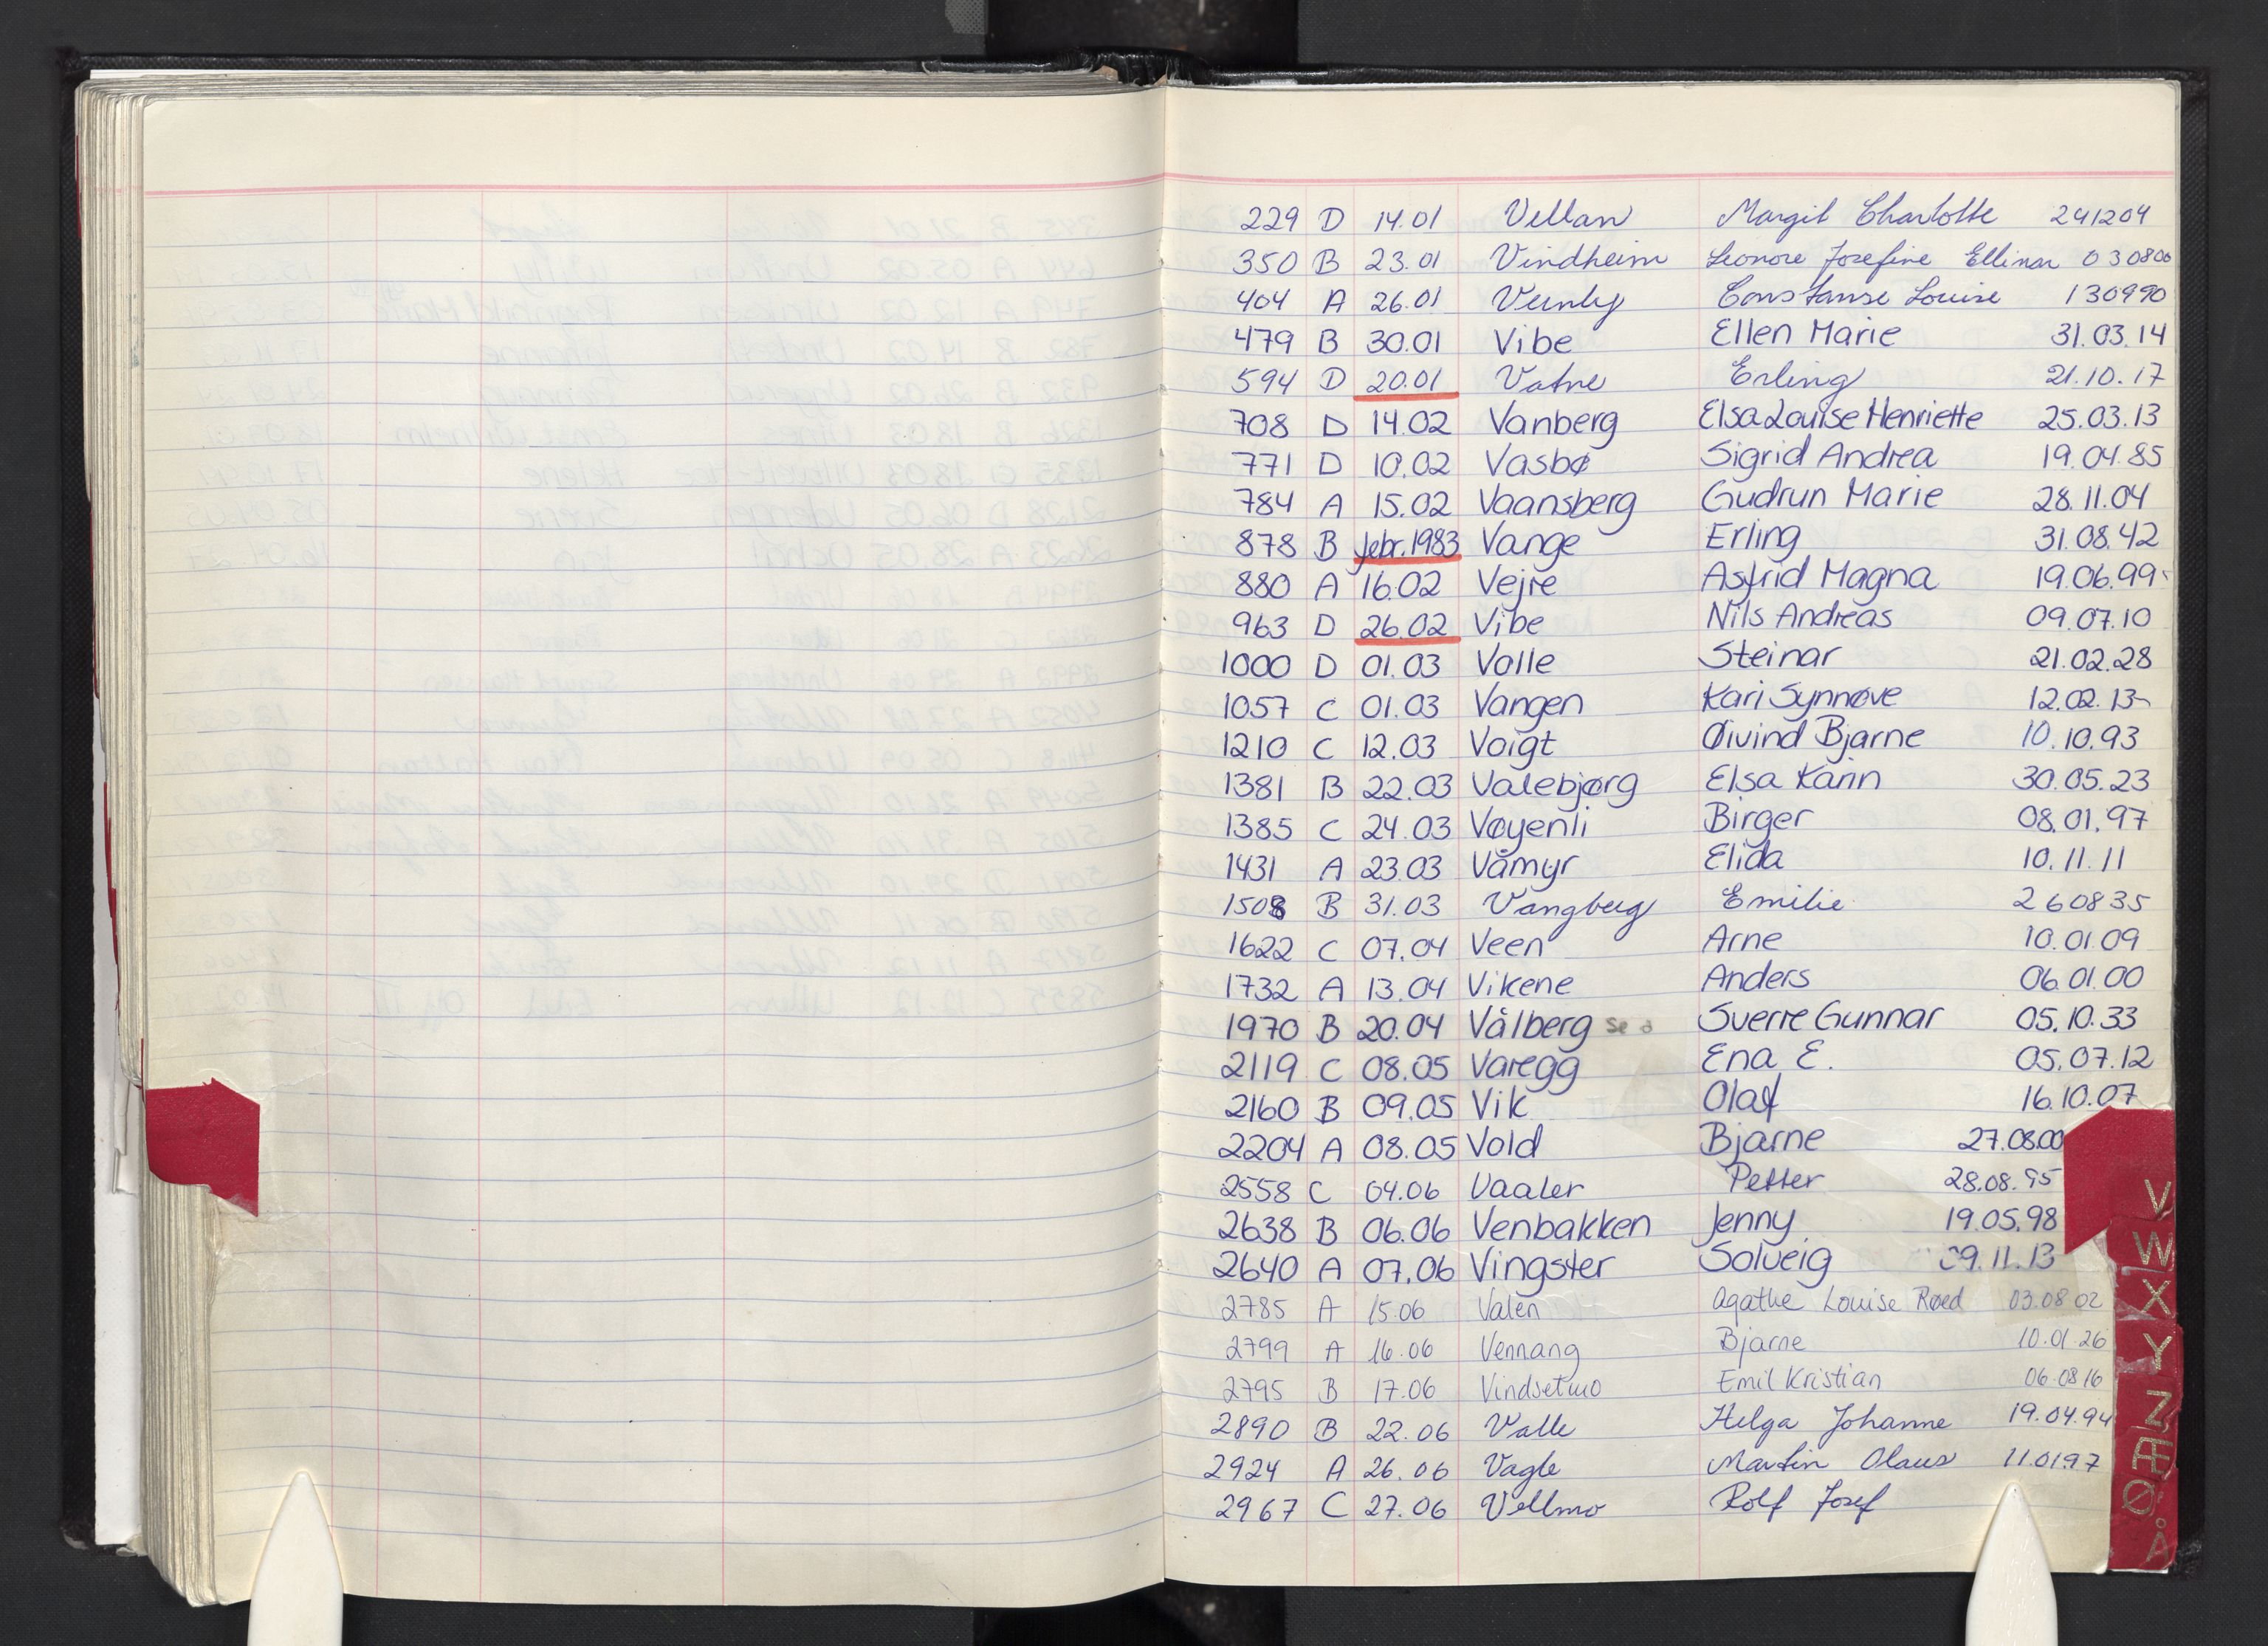 229 D 14.01 Vellan Margit Charlotte 241204
350 B 23.01 Vindheim Leonore Josefine Ellinor 030800
404 A 26.01 Constanse Louise 130990
479 B 30.01 Vibe Ellen Marie 31.03.14
594 D 20.01 Vatne Erling 21.10.17
708 D 14.02 Vanberg Elsa Louise Henriette 25.03.13
771 D 10.02 Vasbø Sigrid Andrea 19.04.85
784 A 15.02 Vaansberg Gudrun Marie 28.11.04
878 B febr.1983 Vange Erling 31.08.42
880 A 16.02 Vejre Astrid Magna 19.06.99
963 D 26.02 Vibe Nils Andreas 09.07.10
1000 D 01.03 Valle Steinar 21.02.28
1057 C 01.03 Vangen Kari Synnøve 12.02.13
1210 C 12.03 Voigt Øivind Bjarne 10.10.93
1381 B 22.03 Valebjørg Elsa Karin 30.05.23
1385 C 24.03 Vøyenli Birger 08.01.97
1431 A 23.03 Våmyr Elida 10.11.11
1508 B 31.03 Vangberg Emilie 260835
1622 C 07.04 Veen Arne 10.01.09
1732 A 13.04 Vikene Anders 06.01.00
1970 B 20.04 Vålberg se å Sverre Gunnar 05.10.33
2119 C 08.05 Varegg Ena E. 05.07.12
2160 B 09.05 Vik Olaf 16.10.07
2204 A 08.05 Vold Bjarne 27.08.00
2558 C 04.06 Vaaler Petter 28.08.95
2638 B 06.06 Venbakken Jenny 19.05.98
2640 A 07.06 Vingster Solveig 09.11.13
2785 A 15.06 Valen Agathe Louise Røed 03.08.02
2799 A 16.06 Vennang Bjarne 10.01.26
2795 B 17.06 Vindsetmo Emil Kristian 06.08.16
2890 B 22.06 Valle Helga Johanne 19.04.94
2924 A 26.06 Vagle Martin Olaus 11.01.97
2967 C 27.06 Vellmo Rolf Josef
V
W
X
Y
Z
Æ
Ø
Å